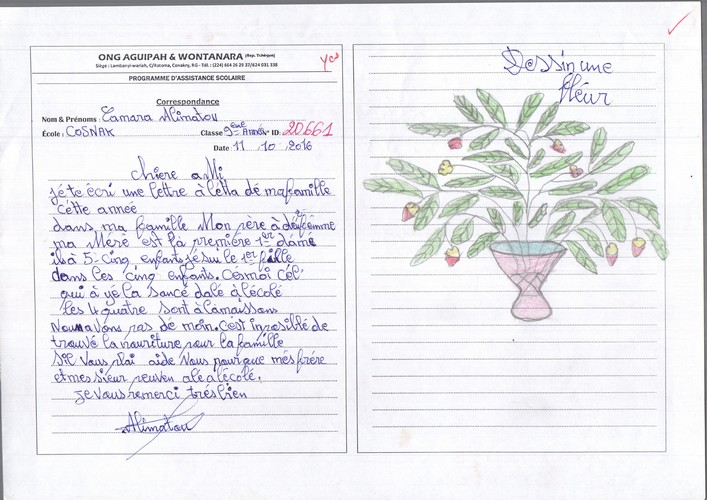 ONG AGUIPAH & WONTANARA (Rep. Tchèque)
Siège : Lambanyi-wariah, C/Ratoma, Conakry, RG - Tél. : (224) 664 26 29 37/624 031 338
yes
PROGRAMME D'ASSISTANCE SCOLAIRE
Correspondance
Nom & Prénoms : Camara Alimatou
École : COSNAK Classe 9ème Année N° ID: 20661
Date : 11 . 10 . 2016
chiere aMi
je te écri une lettre à létta dé ma famille
cétte année
dans ma famille Mon père à déux fémme
ma Mère est la première 1er dame
ils à 5-Cinq enfants je sui le 1er fille
dans les cinq enfants. Césmoi cél
qui à yé la sancé dalé à lécolé
les 4 quatre sont à la maissons
Nounavons pas dé moin. c'est inposiblé de
trouvé la nouriture pour la famille
Sil vous plai aide Nous pour que més frére
et mes sieur peuven alé à lécolé.
je vous remerci trés bien
Alimatou
Dessin une
fléur